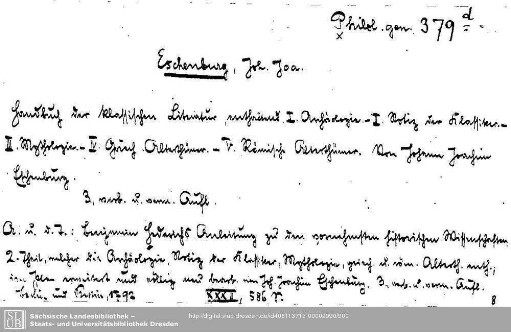 Philol. gen. 379 d
Eschenburg, Joh. Joa.
Handbuch der klassischen Literatur enthaltend I. Archäologie. – II. Notiz der Klassiker. –
III. Mythologie. – IV. Griech. Alterthümer. – V. Römische Alterthümer. Von Johann Joachim
Eschenburg.
3. verb. u. verm. Aufl.
A. u. d. T.: Benjamin Hederichs Anleitung zu den vornehmsten historischen Wissenschaften
2. Theil, welcher die Archäologie, Notiz der Klassiker, Mythologie, griech. u. röm. Alterth. enth.;
erweitert und von Joh. Joachim Eschenburg. 3. verb. u. verm. Aufl.
Berlin und Stettin, 1792 XXXII, 586 S.
8
SLUB
Sächsische Landesbibliothek –
Staats- und Universitätsbibliothek Dresden